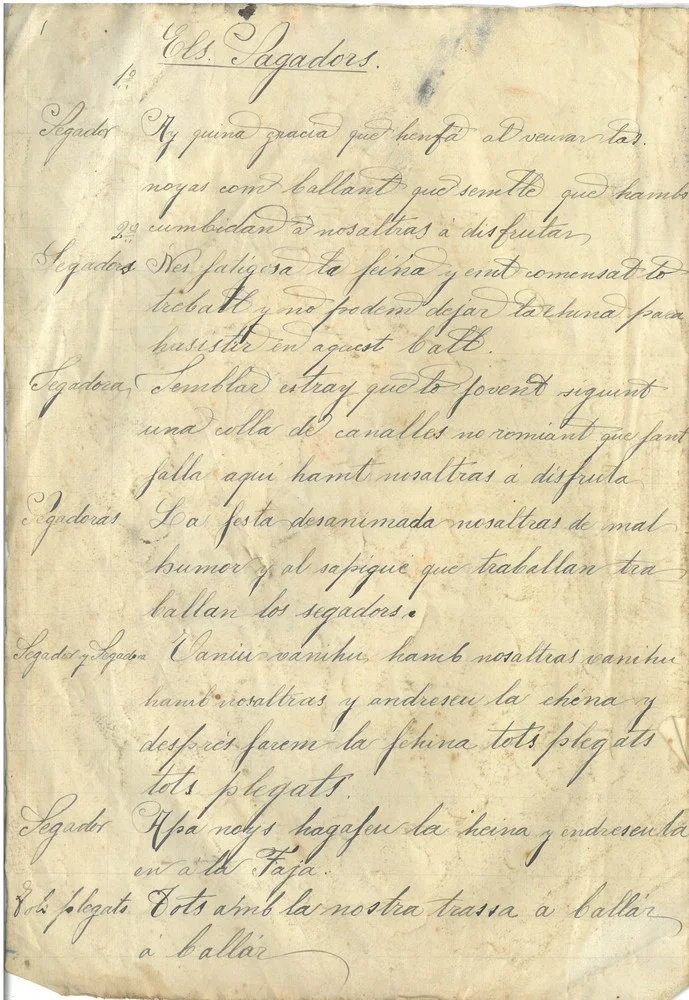 1
Els. Sagadors.
1º
Segador Ay quina gracia que henfá al veurar las
noyas com ballant que semble que hambs
cumbidan á nosaltras á disfrutar
2º
Segadors Nes fatigosa la feina y emt comensat lo
treball y no podem dejar la chuna para
hasistir en aquest ball.
Segadora Semblar estray que lo jovent siguint
una colla de canalles no romiant que fant
falla aqui hamt nosaltras á disfruta
Segadoras La festa desanimada nosaltras de mal
humor y al sapigue que traballan tra
ballan los segadors.
Segador y Segadora Vaniu vanihu hamb nosaltras vanihu
hamb nosaltras y andreseu la ehena y
després farem la fehina tots plegats
tots plegats.
Segador Apa noys hagafeu la heina y endreseula
en a la Faja.
Tots plegats Tots amb la nostra trassa á ballár
á ballár